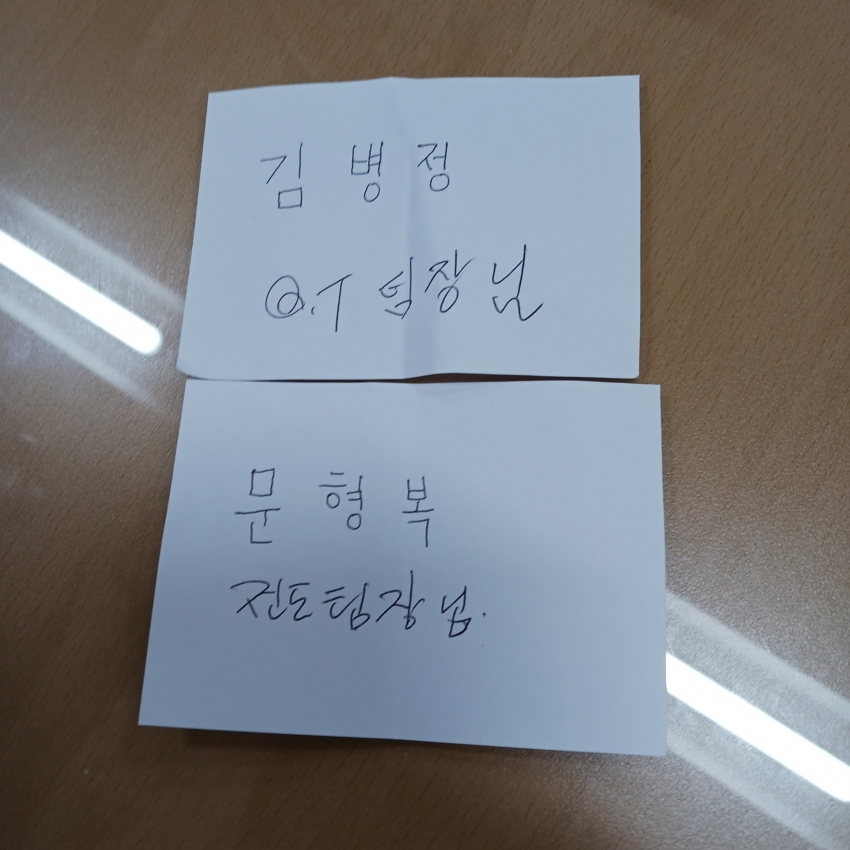 김 병 정
Q.T 팀장님
문 형 복
전도팀장님.